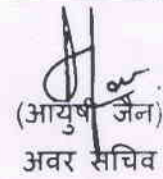 (आयुषी जैन)
अवर सचिव